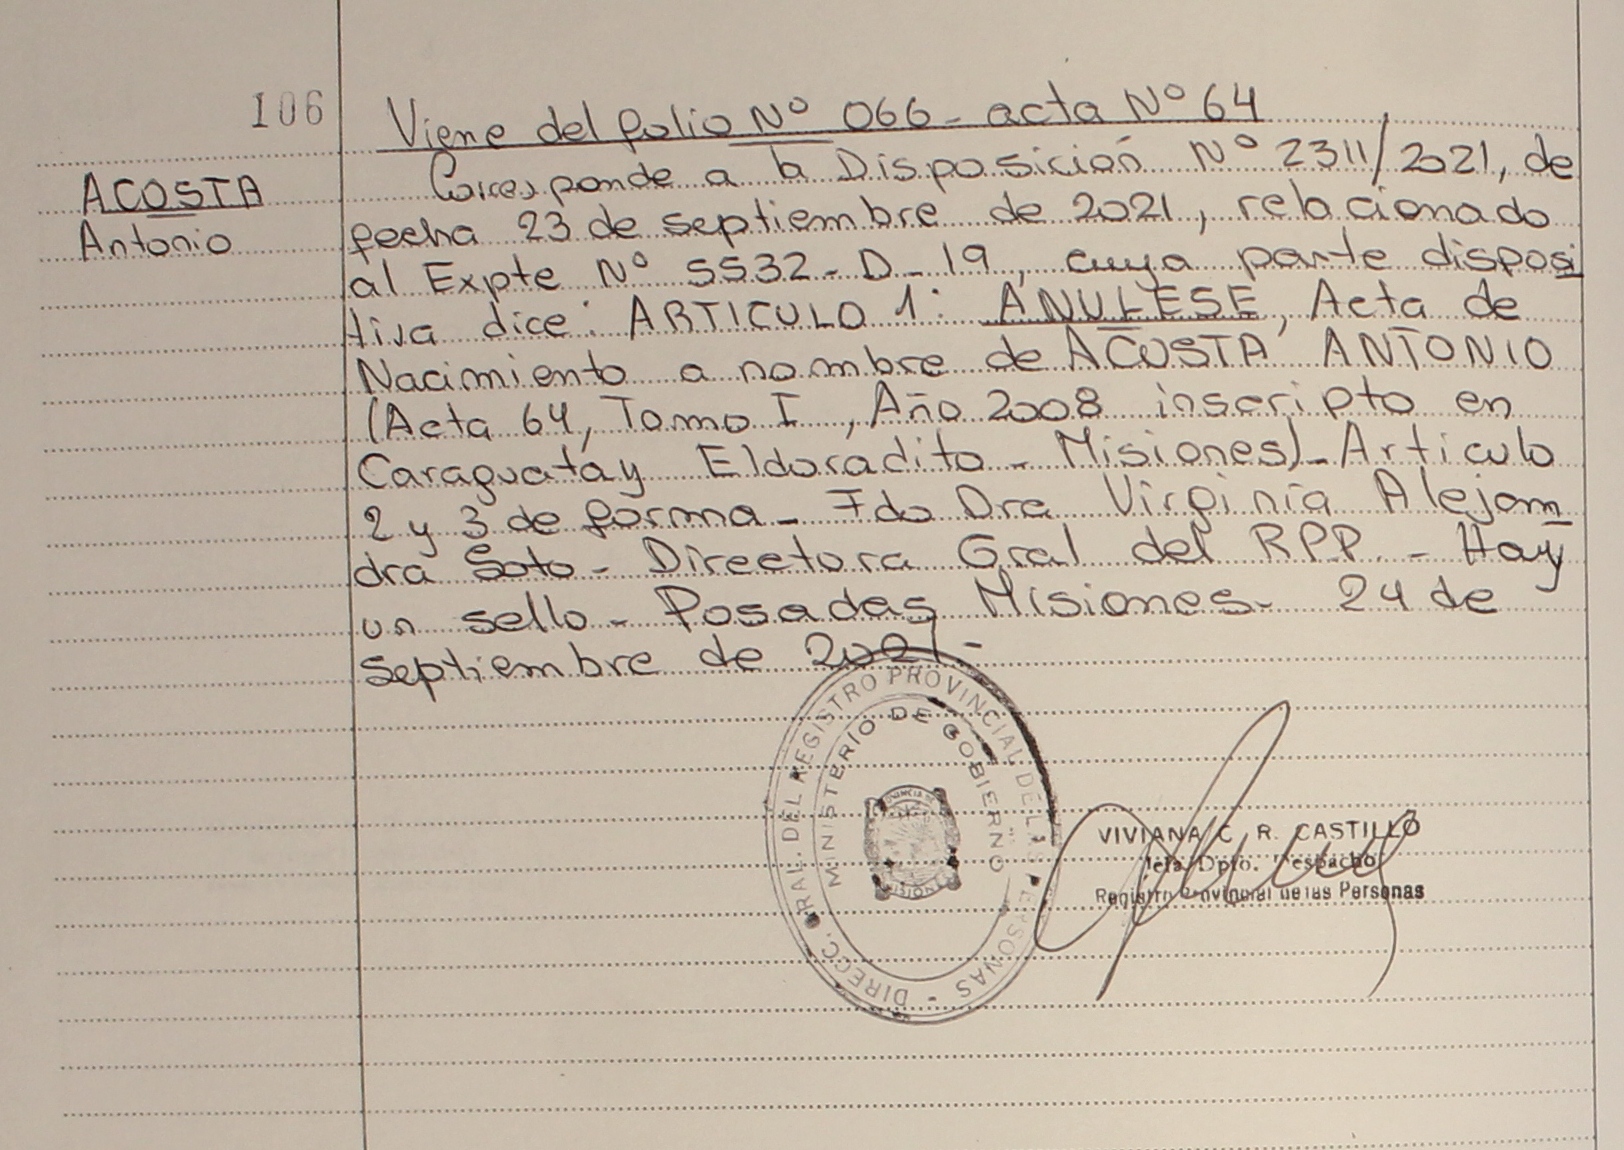 106
Viene del folio Nº 066 - acta Nº 64
ACOSTA
Antonio
Corresponde a la Disposición Nº 2311/2021, de
fecha 23 de septiembre de 2021, relacionado
al Expte Nº 5532-D-19, cuya parte disposi
tiva dice: ARTICULO 1: ANULESE, Acta de
Nacimiento a nombre de ACOSTA ANTONIO
(Acta 64, Tomo I, Año 2008 inscripto en
Caraguatay Eldoradito - Misiones)- Articulo
2 y 3 de forma - Fdo Dra Virginia Alejan
dra Soto - Directora Gral del RPP. - Hay
un sello - Posadas Misiones - 24 de
septiembre de 2021 -
DIRECC. GRAL. DEL REGISTRO PROVINCIAL DE LAS PERSONAS -
MINISTERIO DE GOBIERNO
PROVINCIA DE
MISIONES
VIVIANA C. R. CASTILLO
Jefa Dpto. Despacho
Registro Provincial de las Personas